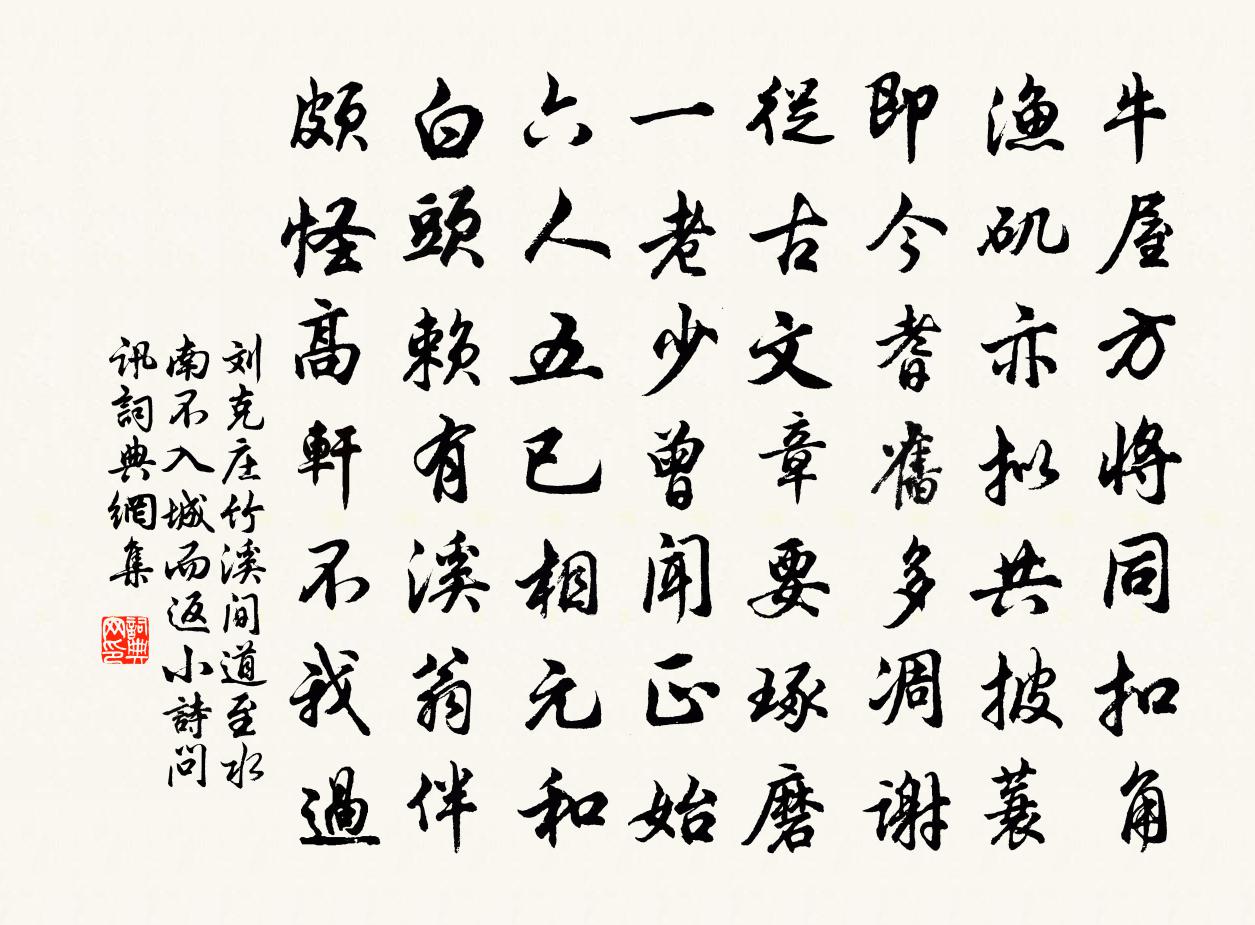 牛屋方将同扣角
漁矶亦拟共披蓑
即今耆舊多凋谢
從古文章要琢磨
一老少曾闻正始
六人五已相元和
白頭赖有溪翁伴
頗怪高軒不我過
刘克庄竹溪间道至水
南不入城而返小詩问
讯詞典網集
詞典网印